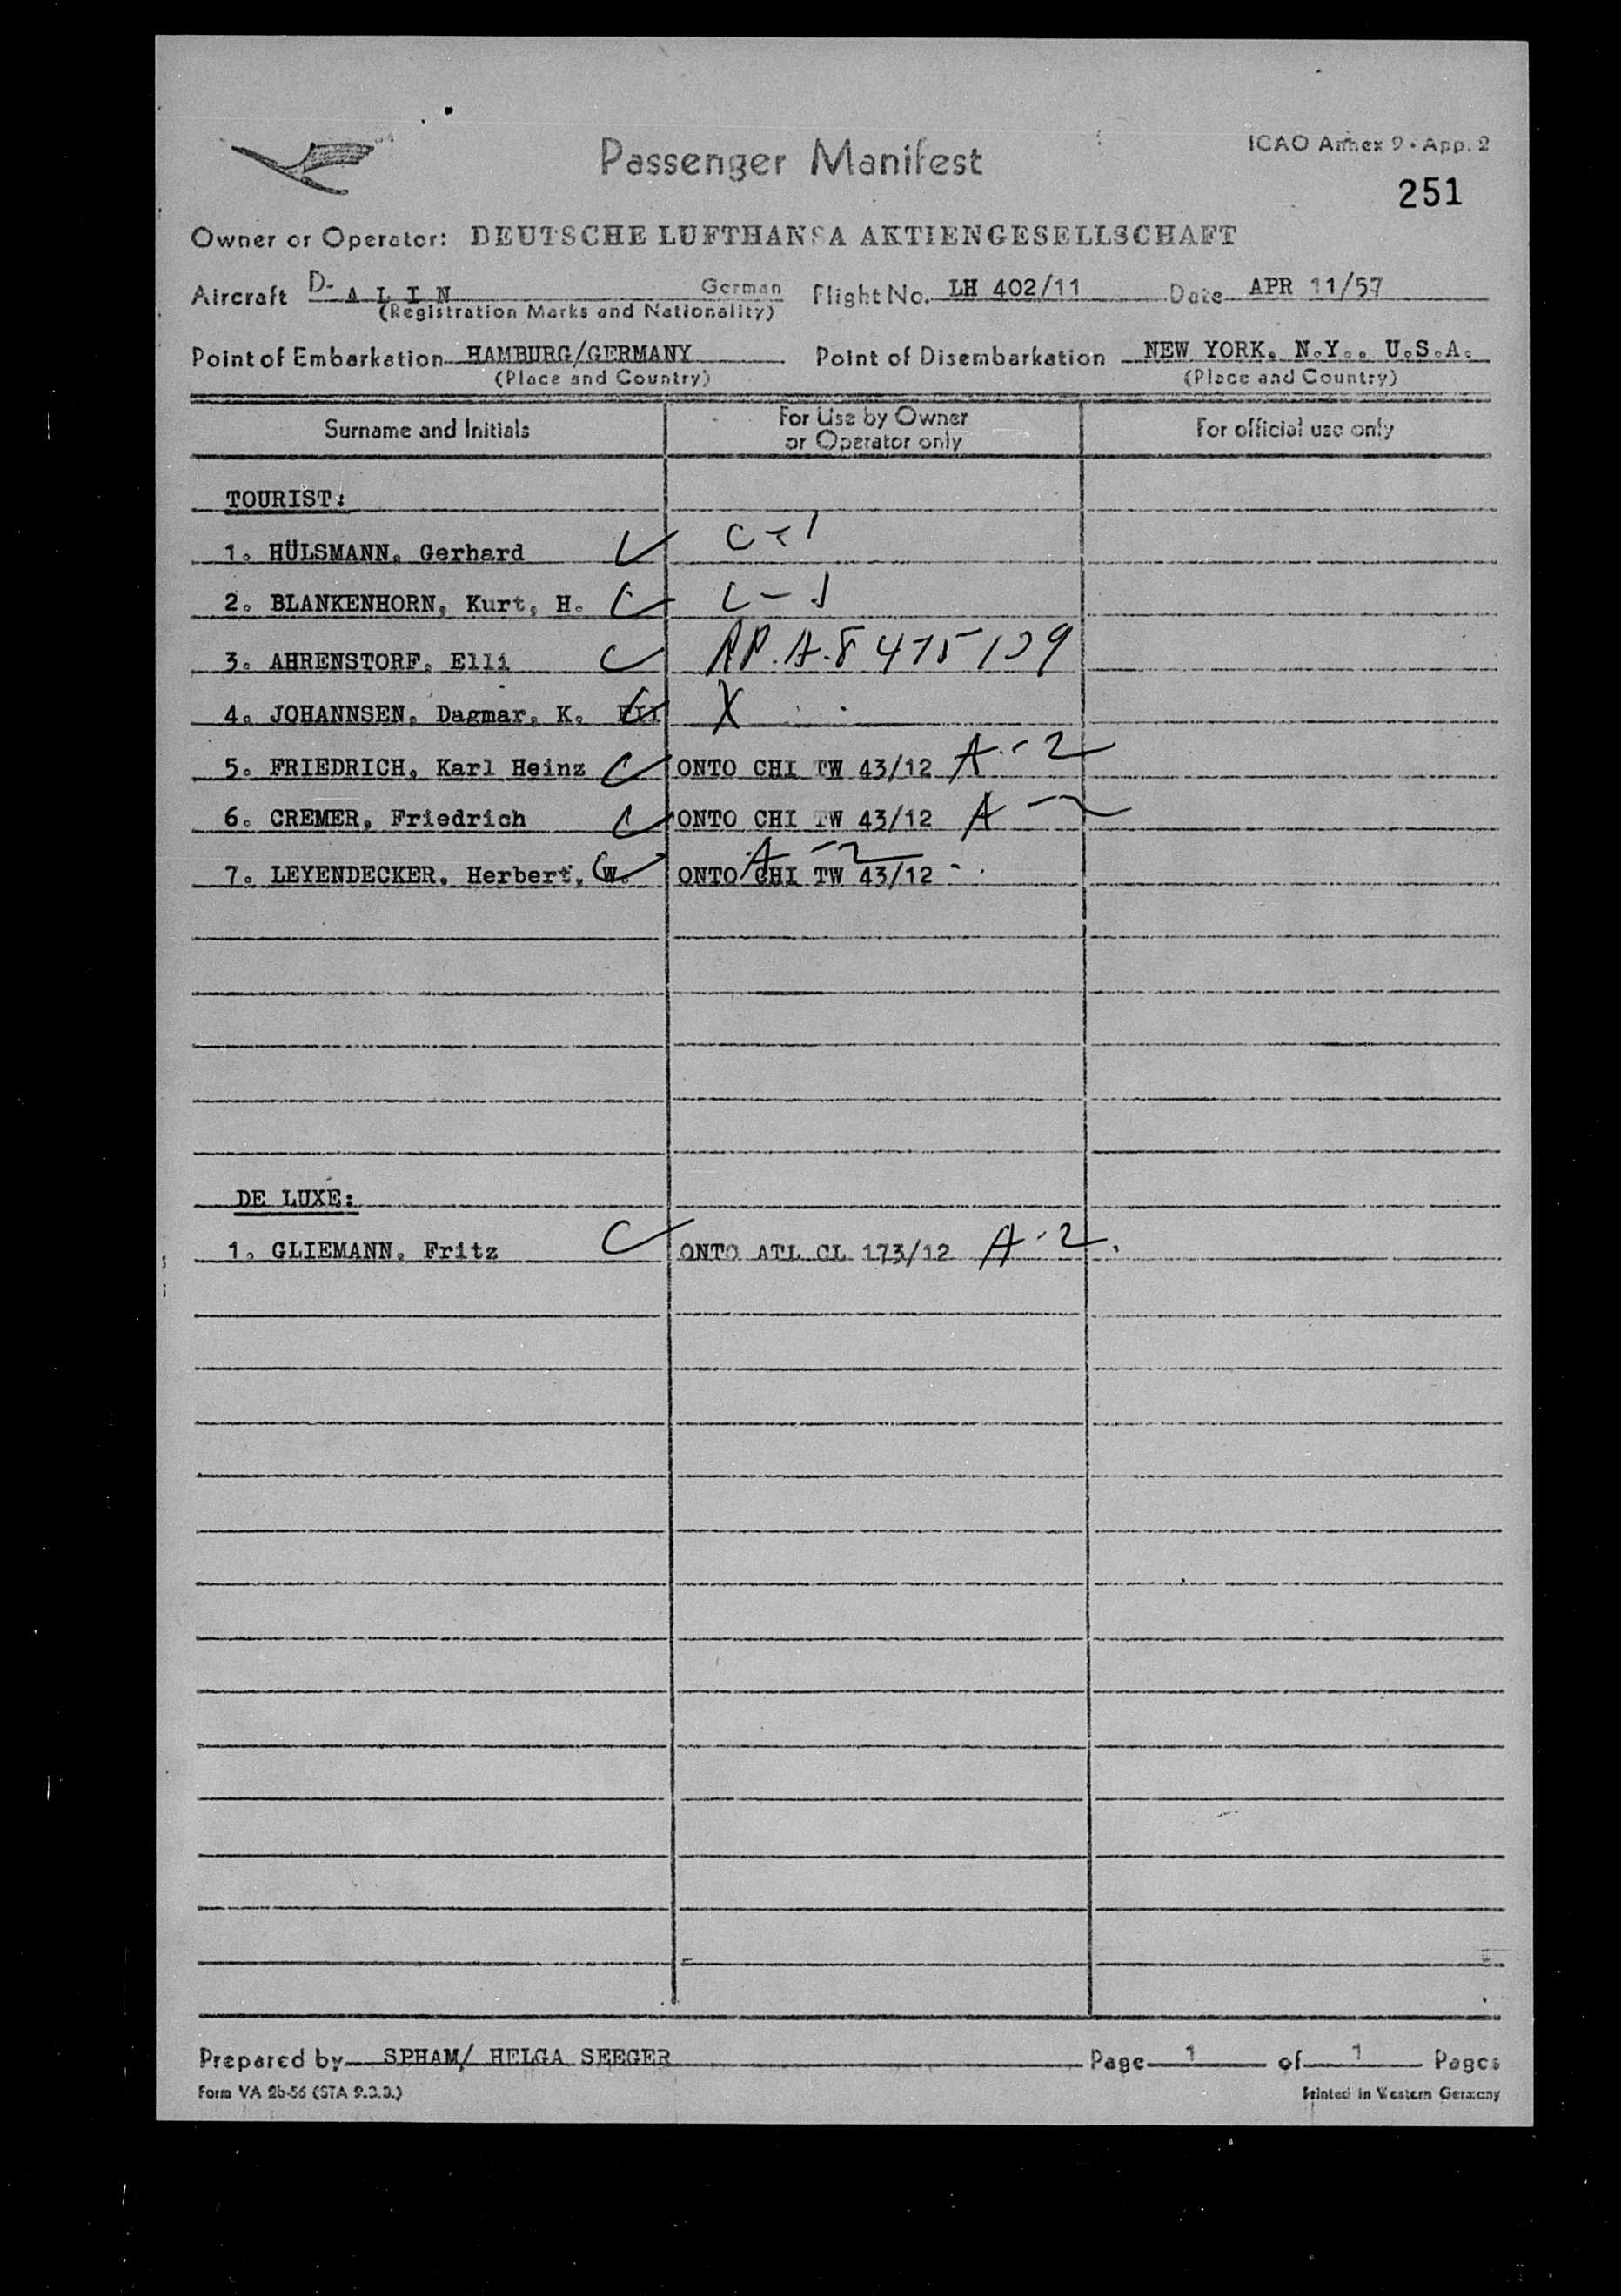 Passenger Manifest
ICAO Annex 9 · App. 2
251
Owner or Operator: DEUTSCHE LUFTHANSA AKTIENGESELLSCHAFT
Aircraft D- A L I N German Flight No. LH 402/11 Date APR 11/57
(Registration Marks and Nationality)
Point of Embarkation HAMBURG/GERMANY Point of Disembarkation NEW YORK, N.Y., U.S.A.
(Place and Country) (Place and Country)
Surname and Initials For Use by Owner or Operator only For official use only
TOURIST:
1. HÜLSMANN, Gerhard C-1
2. BLANKENHORN, Kurt, H. C-1
3. AHRENSTORF, Elli
4. JOHANNSEN, Dagmar, K. X
5. FRIEDRICH, Karl Heinz ONTO CHI TW 43/12 A-2
6. CREMER, Friedrich ONTO CHI TW 43/12 A-2
7. LEYENDECKER, Herbert, W. ONTO CHI TW 43/12 A-2
DE LUXE:
1. GLIEMANN, Fritz ONTO ATL CL 173/12 A-2
Prepared by SPHAM/ HELGA SEEGER Page 1 of 1 Pages
Form VA 2b-56 (STA 9.3.3.) Printed in Western Germany